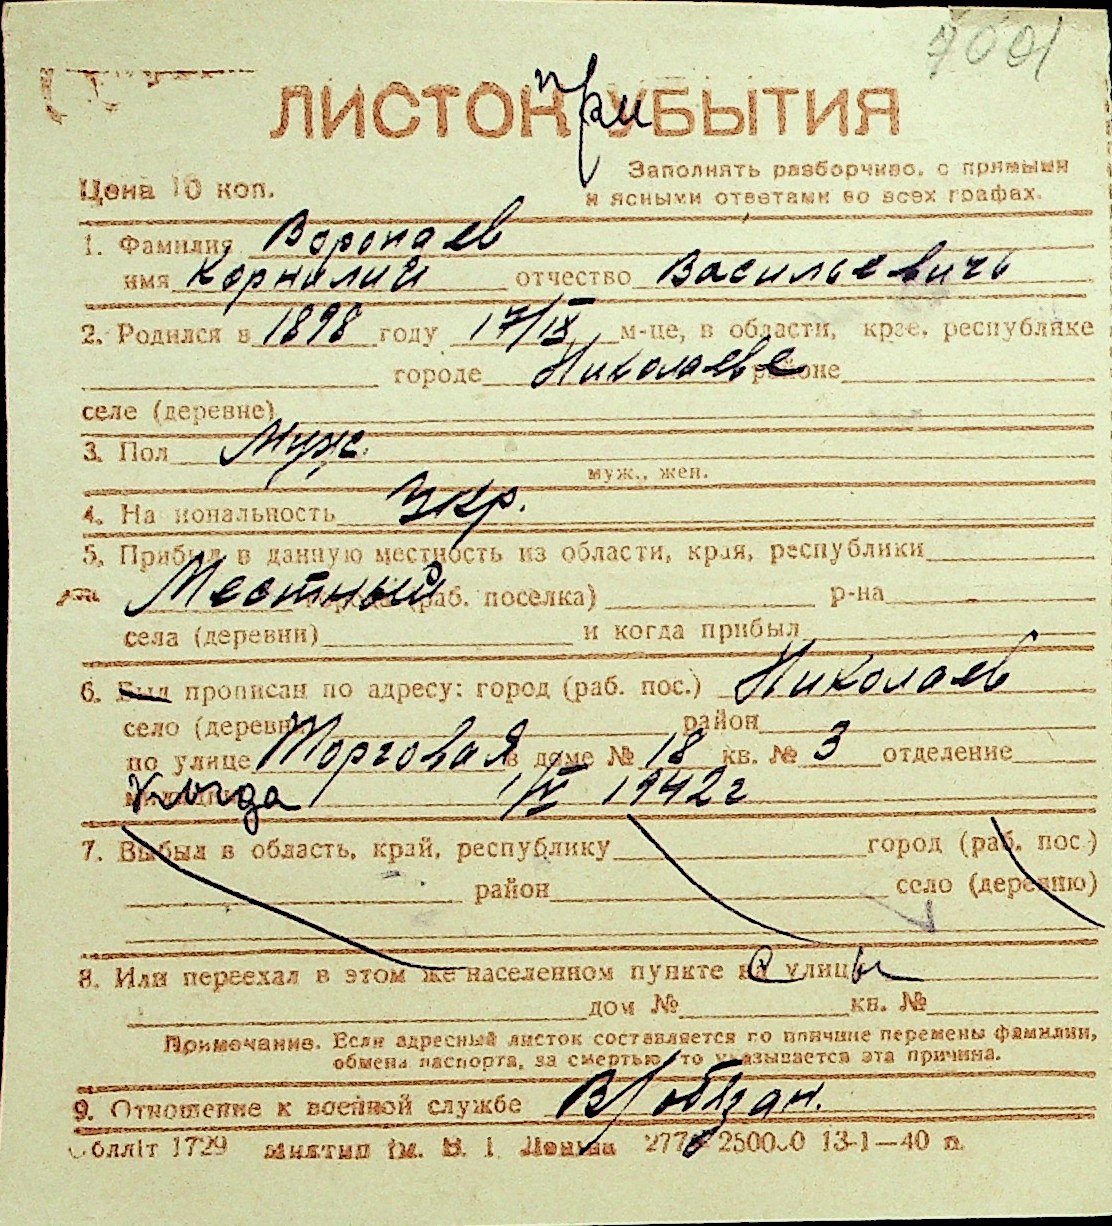 7001
ЛИСТОК при УБЫТИЯ
Цена 10 коп.
Заполнять разборчиво, с прямыми
и ясными ответами во всех графах.
1. Фамилия Воропаев
имя Корнилий отчество Васильевичъ
2. Родился в 1898 году 17/IX м-це, в области, крае, республике
городе Николаеве районе
селе (деревне)
3. Пол Муж.
муж., жен.
4. На иональность Укр.
5. Прибыл в данную местность из области, края, республики
Местный раб. поселка) р-на
села (деревни) и когда прибыл
6. Был прописан по адресу: город (раб. пос.) Николаев
село (деревня) район
по улице Торговая в доме № 18 кв. № 3 отделение
Когда 1/IV 1942 г
7. Выбыл в область, край, республику город (раб. пос.)
район село (деревню)
8. Или переехал в этом же населенном пункте на С улицы
дом № кв. №
Примечание. Если адресный листок составляется по причине перемены фамилии,
обмена паспорта, за смертью, то указывается эта причина.
9. Отношение к военной службе В/обязан.
Облліт 1729 им. В. І. Леніна 277 13-1—40 п.